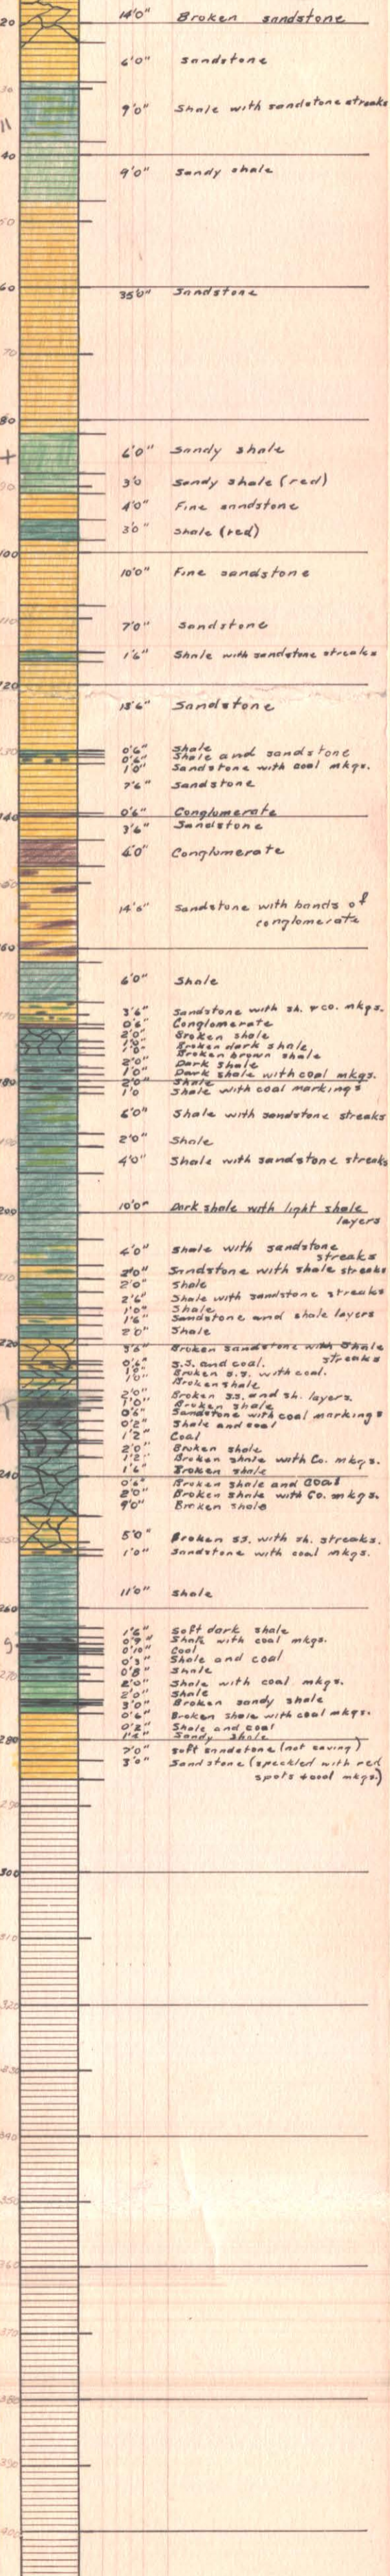 20
14'0" Broken sandstone
6'0" Sandstone
30
9'0" Shale with sandstone streaks
11
40
9'0" Sandy shale
50
60
35'0" Sandstone
70
80
6'0" Sandy shale
+
90
3'0 Sandy shale (red)
4'0" Fine sandstone
3'0" Shale (red)
100
10'0" Fine sandstone
110
7'0" Sandstone
1'6" Shale with sandstone streaks
120
13'6" Sandstone
130
0'6" Shale
0'6" Shale and sandstone
1'0" Sandstone with coal mkgs.
7'6" Sandstone
0'6" Conglomerate
140
3'6" Sandstone
4'0" Conglomerate
50
14'6" Sandstone with bands of
conglomerate
160
6'0" Shale
170
3'6" Sandstone with sh. & co. mkgs.
0'6" Conglomerate
2'0" Broken shale
1'0" Broken dark shale
Broken brown shale
2'0" Dark shale
1'0" Dark shale with coal mkgs.
180
2'0" Shale
1'0 Shale with coal markings
6'0" Shale with sandstone streaks
190
2'0" Shale
4'0" Shale with sandstone streaks
200
10'0" Dark shale with light shale
layers
4'0" Shale with sandstone
streaks
210
3'0" Sandstone with shale streaks
2'0" Shale
2'6" Shale with sandstone streaks
1'0" Shale
1'6" Sandstone and shale layers
2'0" Shale
220
3'6" Broken sandstone with shale
streaks
0'6" S.S. and coal.
1'0" Broken S.S. with coal.
1'0" Broken shale
2'0" Broken S.S. and sh. layers.
1'0" Broken shale
0'6" Sandstone with coal markings
0'2" Shale and coal
1'2" Coal
2'0" Broken shale
1'2" Broken shale with Co. mkgs.
1'6" Broken shale
240
0'6" Broken shale and Coal
2'0" Broken shale with Co. mkgs.
9'0" Broken shale
250
5'0" Broken S.S. with sh. streaks.
1'0" Sandstone with coal mkgs.
11'0" Shale
260
1'6" Soft dark shale
0'9" Shale with coal mkgs.
0'10" Coal
0'3" Shale and coal
0'8" Shale
270
2'0" Shale with coal mkgs.
2'0" Shale
3'0" Broken sandy shale
0'6" Broken shale with coal mkgs.
0'2" Shale and coal
1'4" Sandy shale
280
7'0" Soft sandstone (not caving)
3'0" Sandstone (speckled with red
spots & coal mkgs.)
290
300
310
320
330
340
350
360
370
380
390
400